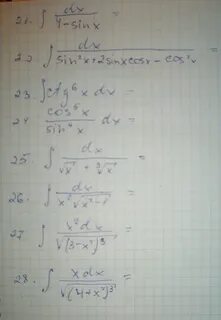 21. ∫ dx / (4 - sin x) =
22. ∫ dx / (sin² x + 2 sin x cos x - cos² x) =
23. ∫ ctg⁶ x dx =
24. cos⁵ x / sin⁴ x dx =
25. ∫ dx / (√x + ∛x) =
26. ∫ dx / (x² √(x² - 1)) =
27. ∫ x² dx / √((3 - x²)³) =
28. ∫ x dx / √((4 + x²)³) =